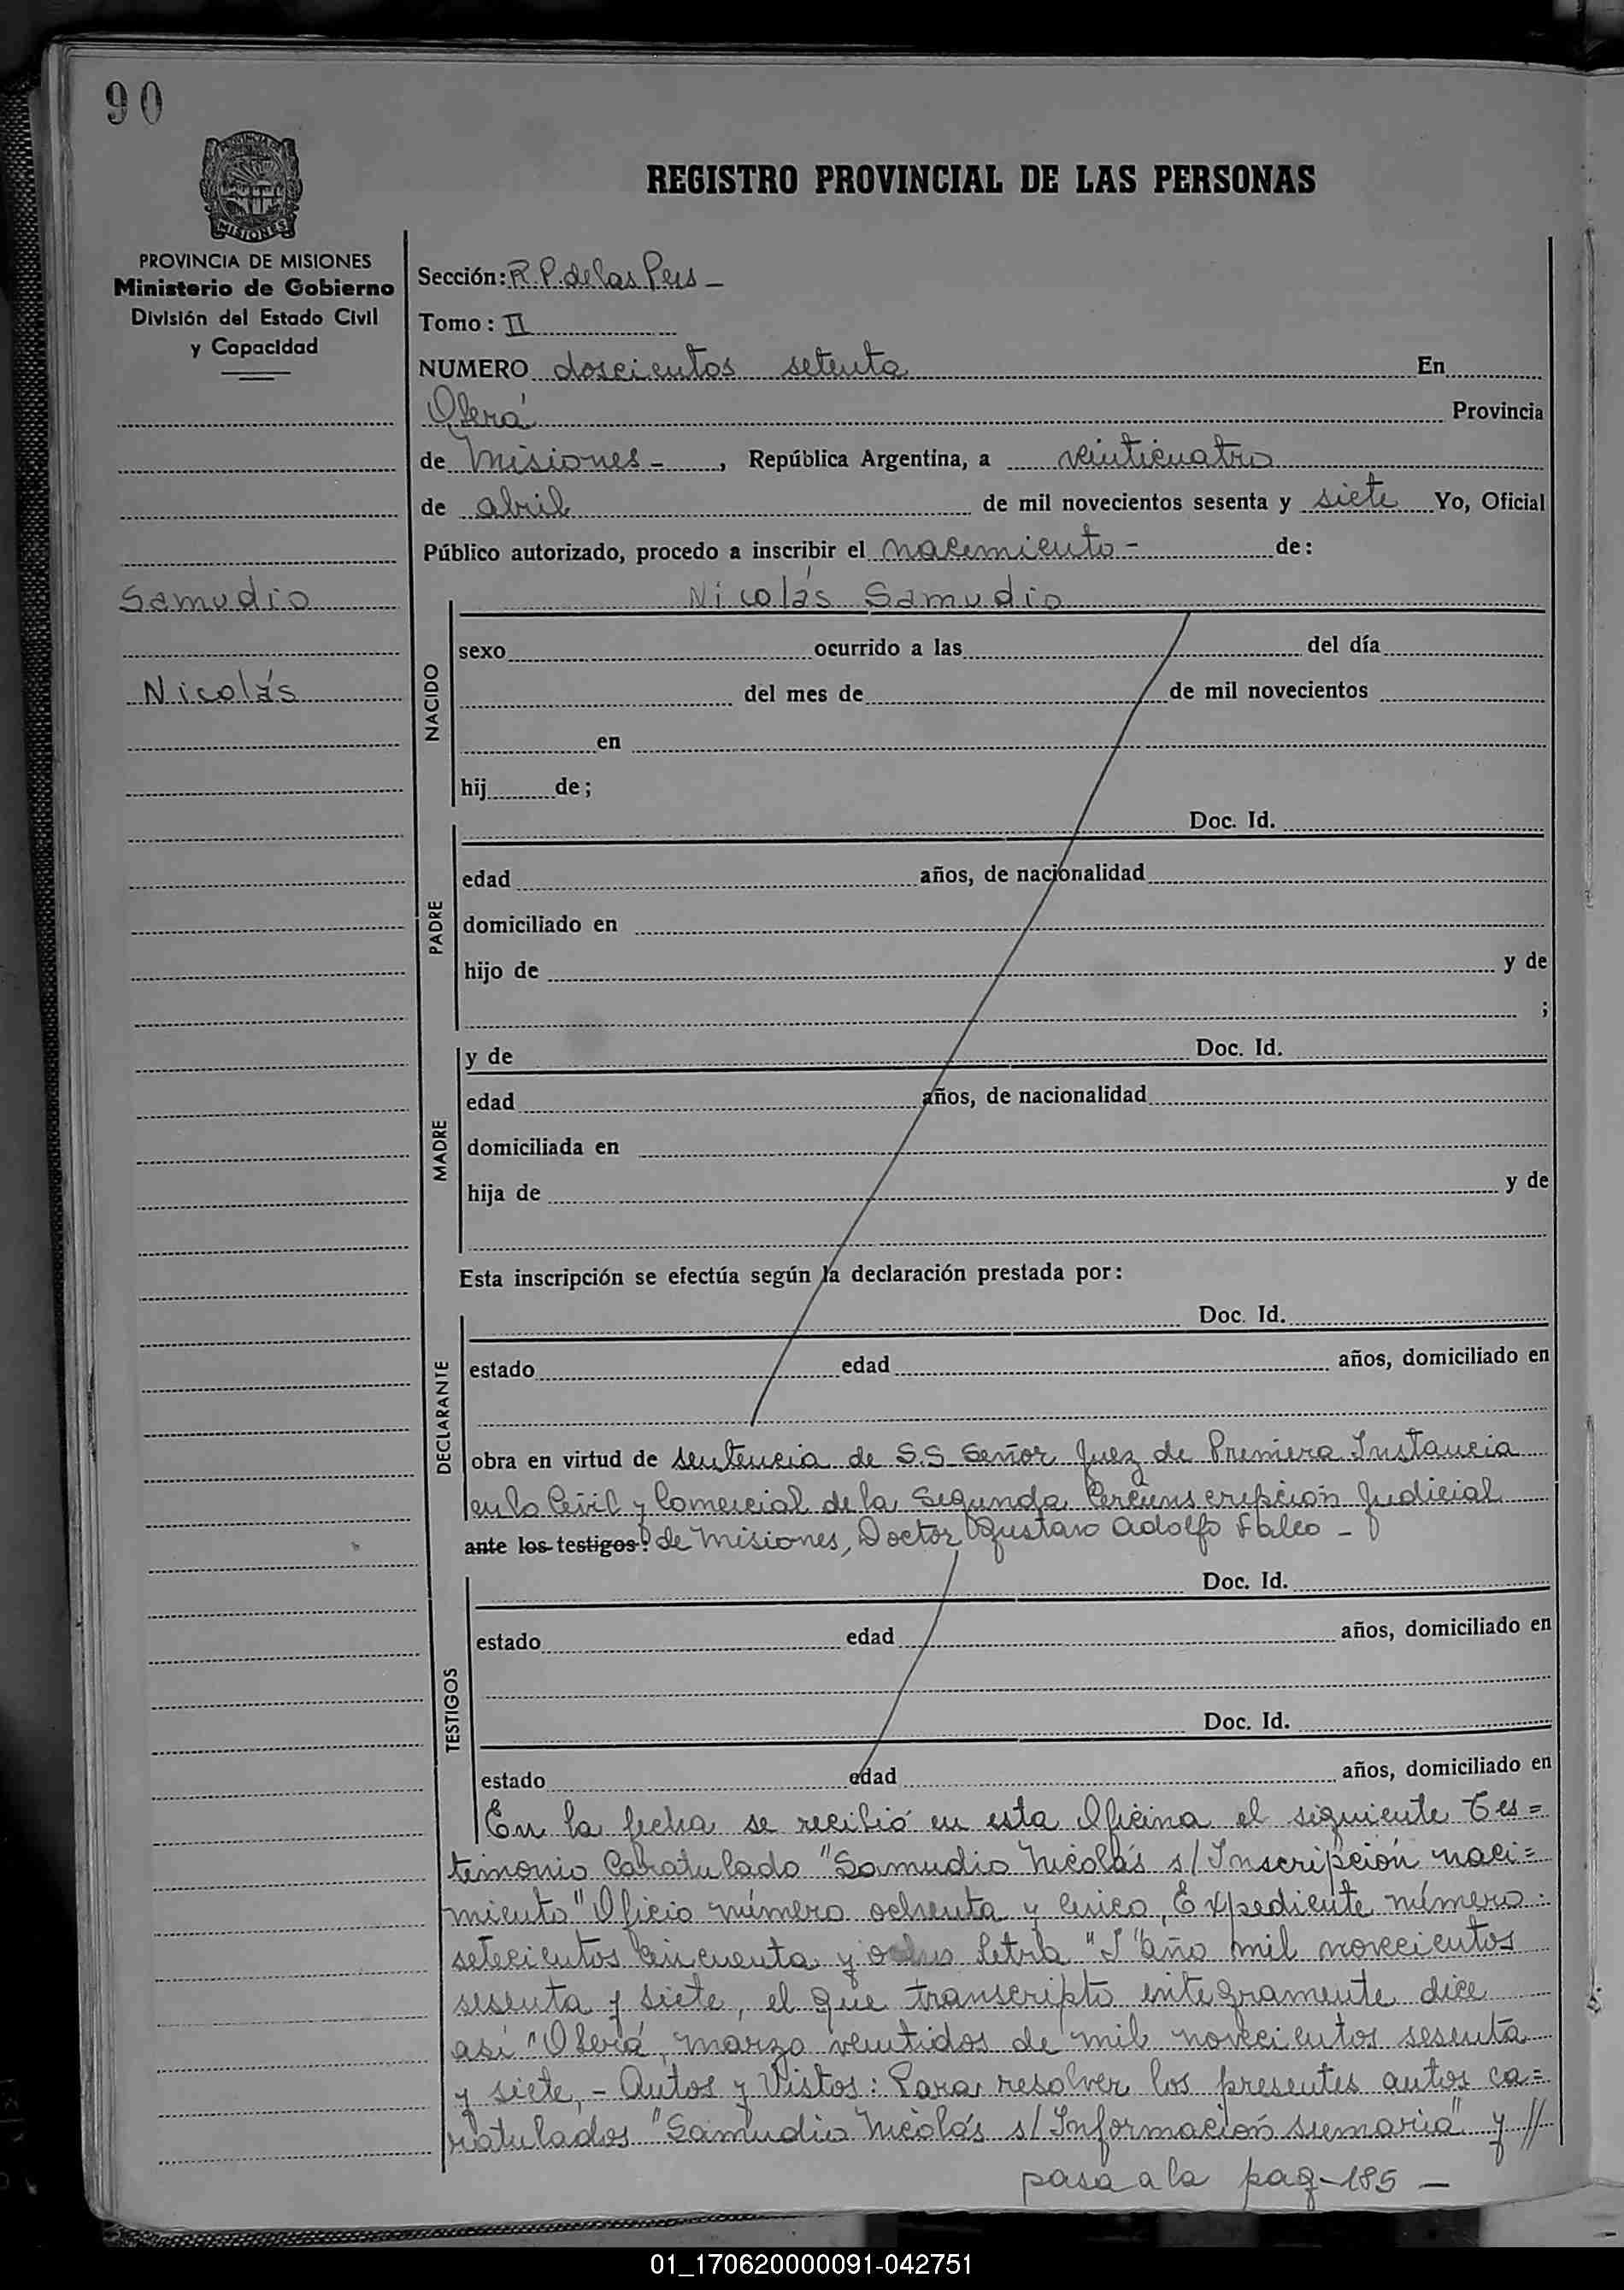 90
PROVINCIA DE MISIONES
REGISTRO PROVINCIAL DE LAS PERSONAS
PROVINCIA DE MISIONES
Ministerio de Gobierno
División del Estado Civil
y Capacidad
Samudio
Nicolás
Sección: R. P. de las Pers -
Tomo: II
NUMERO doscientos setenta En
Oberá Provincia
de Misiones -, República Argentina, a veinticuatro
de abril de mil novecientos sesenta y siete Yo, Oficial
Público autorizado, procedo a inscribir el nacimiento - de:
Nicolás Samudio
NACIDO
sexo ocurrido a las del día
del mes de de mil novecientos
en
hij de;
PADRE
Doc. Id.
edad años, de nacionalidad
domiciliado en
hijo de y de
;
MADRE
y de Doc. Id.
edad años, de nacionalidad
domiciliada en
hija de y de
Esta inscripción se efectúa según la declaración prestada por:
DECLARANTE
Doc. Id.
estado edad años, domiciliado en
obra en virtud de sentencia de S.S. Señor Juez de Primera Instancia
en lo Civil y Comercial de la Segunda Circunscripción Judicial
ante los testigos: de Misiones, Doctor Gustavo Adolfo -
TESTIGOS
Doc. Id.
estado edad años, domiciliado en
Doc. Id.
estado edad años, domiciliado en
En la fecha se recibió en esta Oficina el siguiente Tes=
timonio Caratulado "Samudio Nicolás s/ Inscripción naci=
miento" Oficio número ochenta y cinco, Expediente número:
setecientos cincuenta y ocho letra "S" año mil novecientos
sesenta y siete, el que transcripto integramente dice
así "Oberá, marzo veintidos de mil novecientos sesenta
y siete, - Autos y Vistos: Para resolver los presentes autos ca=
ratulados "Samudio Nicolás s/ Información sumaria" y //
pasa a la pag - 185 -
01_170620000091-042751